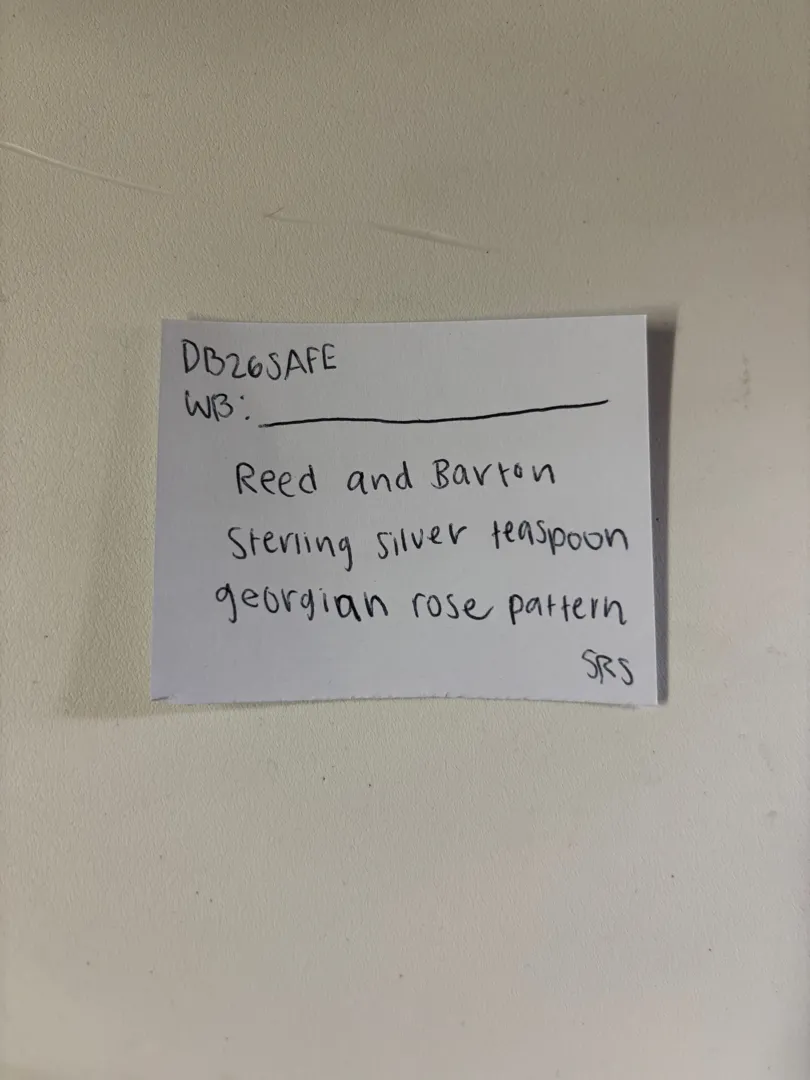 DB26SAFE
WB:
Reed and Barton
Sterling silver teaspoon
georgian rose pattern
SRS